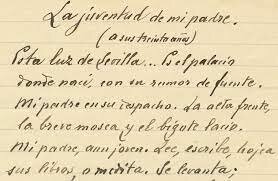 La juventud de mi padre.
(a sus treinta años)
Esta luz de Sevilla... Es el palacio
donde nací, con su rumor de fuente.
Mi padre en su despacho. La alta frente,
la breve mosca y el bigote lacio.
Mi padre, aun joven. Lee, escribe, hojea
sus libros, o medita. Se levanta;